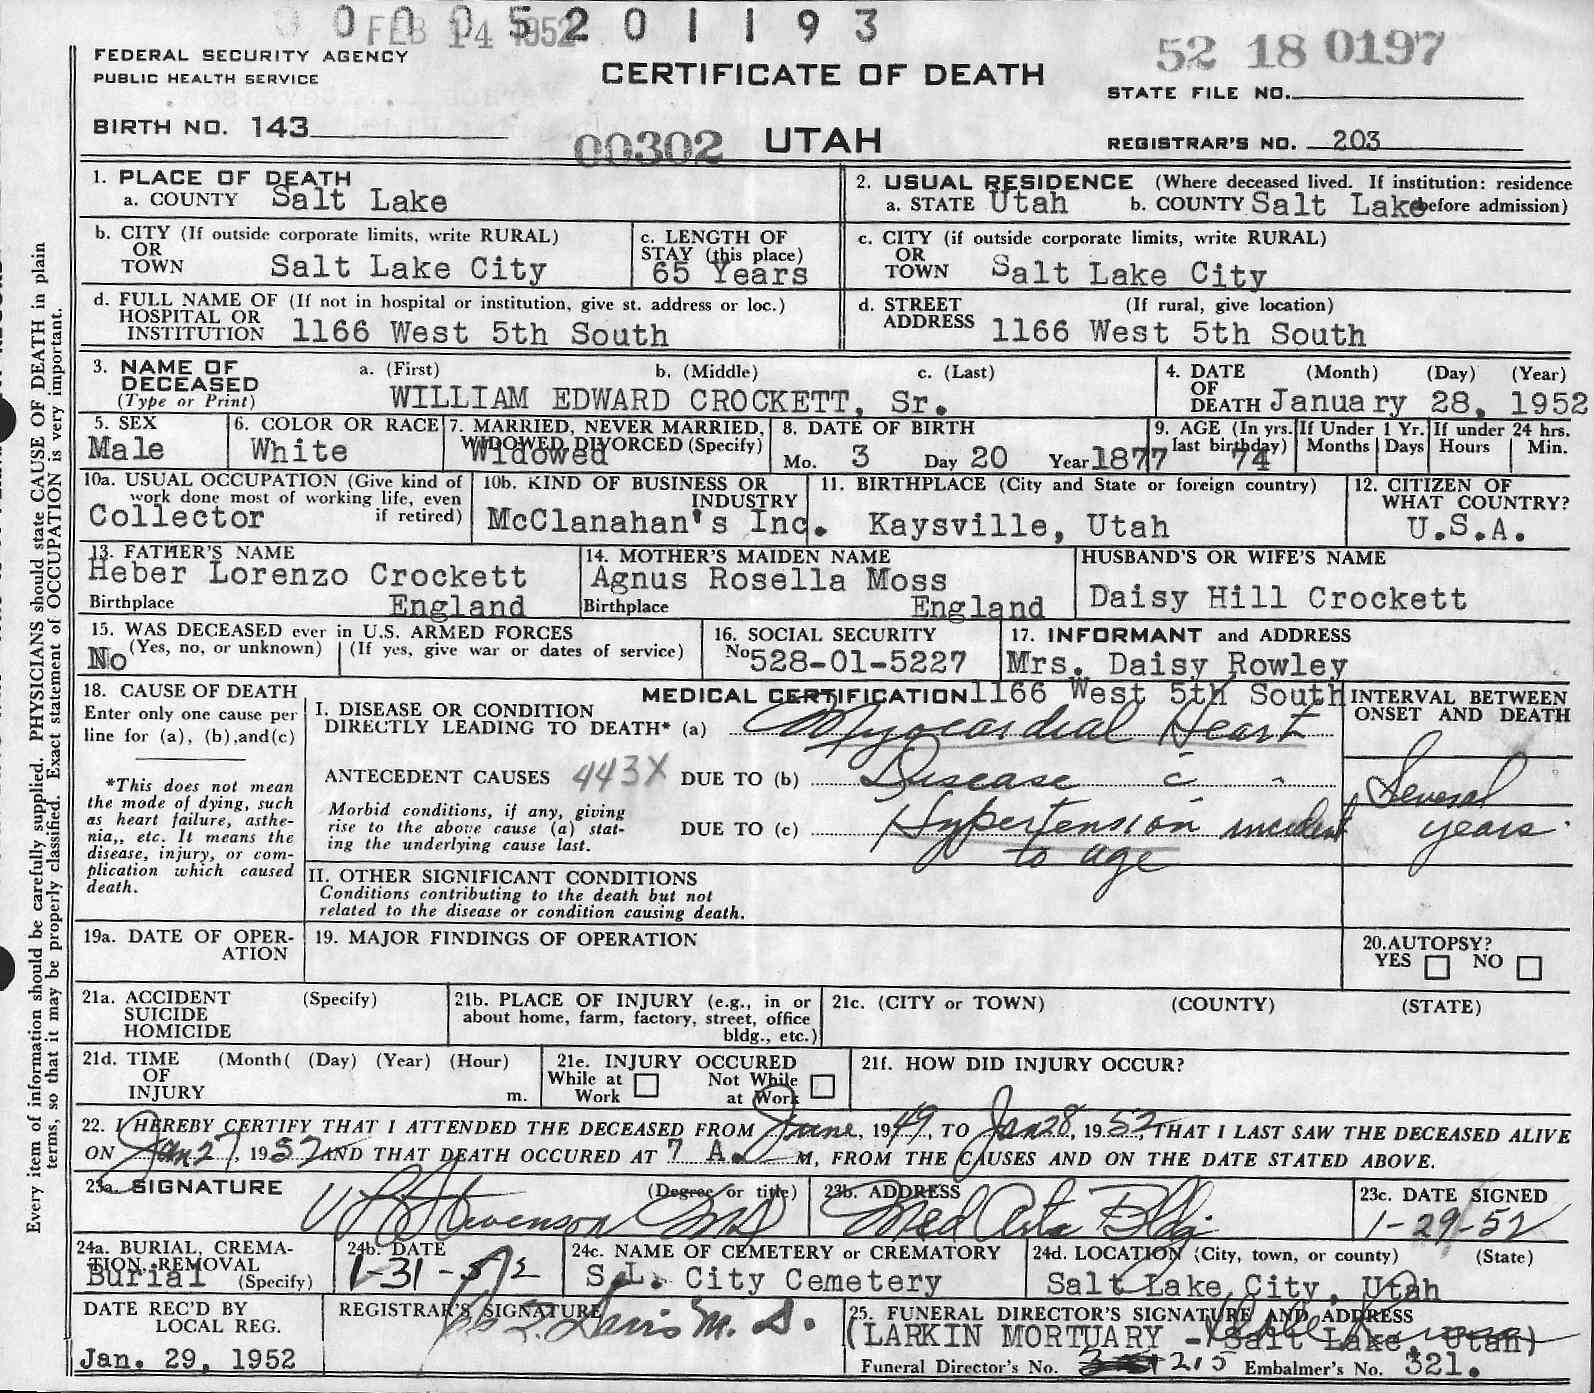 0 0 0 5 2 0 1 1 9 3
FEB 14 1952
52 18 0197
FEDERAL SECURITY AGENCY
PUBLIC HEALTH SERVICE
CERTIFICATE OF DEATH
STATE FILE NO.
BIRTH NO. 143
00302
UTAH
REGISTRAR'S NO. 203
1. PLACE OF DEATH
a. COUNTY Salt Lake
2. USUAL RESIDENCE (Where deceased lived. If institution: residence
a. STATE Utah b. COUNTY Salt Lake before admission)
b. CITY (If outside corporate limits, write RURAL)
OR
TOWN Salt Lake City
c. LENGTH OF
STAY (this place)
65 Years
c. CITY (if outside corporate limits, write RURAL)
OR
TOWN Salt Lake City
d. FULL NAME OF (If not in hospital or institution, give st. address or loc.)
HOSPITAL OR
INSTITUTION 1166 West 5th South
d. STREET (If rural, give location)
ADDRESS 1166 West 5th South
3. NAME OF a. (First) b. (Middle) c. (Last)
DECEASED
(Type or Print) WILLIAM EDWARD CROCKETT, Sr.
4. DATE (Month) (Day) (Year)
OF
DEATH January 28, 1952
5. SEX
Male
6. COLOR OR RACE
White
7. MARRIED, NEVER MARRIED,
WIDOWED, DIVORCED (Specify)
Widowed
8. DATE OF BIRTH
Mo. 3 Day 20 Year 1877
9. AGE (In yrs.
last birthday) 74
If Under 1 Yr.
Months Days
If under 24 hrs.
Hours Min.
10a. USUAL OCCUPATION (Give kind of
work done most of working life, even
if retired)
Collector
10b. KIND OF BUSINESS OR
INDUSTRY
McClanahan's Inc.
11. BIRTHPLACE (City and State or foreign country)
Kaysville, Utah
12. CITIZEN OF
WHAT COUNTRY?
U.S.A.
13. FATHER'S NAME
Heber Lorenzo Crockett
Birthplace England
14. MOTHER'S MAIDEN NAME
Agnus Rosella Moss
Birthplace England
HUSBAND'S OR WIFE'S NAME
Daisy Hill Crockett
15. WAS DECEASED ever in U.S. ARMED FORCES
(Yes, no, or unknown) (If yes, give war or dates of service)
No
16. SOCIAL SECURITY
No 528-01-5227
17. INFORMANT and ADDRESS
Mrs. Daisy Rowley
1166 West 5th South
18. CAUSE OF DEATH
Enter only one cause per
line for (a), (b), and (c)
*This does not mean
the mode of dying, such
as heart failure, asthe-
nia,, etc. It means the
disease, injury, or com-
plication which caused
death.
MEDICAL CERTIFICATION
I. DISEASE OR CONDITION
DIRECTLY LEADING TO DEATH* (a) Myocardial Heart
ANTECEDENT CAUSES 443X DUE TO (b) Disease c̄
Morbid conditions, if any, giving
rise to the above cause (a) stat-
ing the underlying cause last.
DUE TO (c) Hypertension incident
to age
INTERVAL BETWEEN
ONSET AND DEATH
Several
years
II. OTHER SIGNIFICANT CONDITIONS
Conditions contributing to the death but not
related to the disease or condition causing death.
19a. DATE OF OPER-
ATION
19. MAJOR FINDINGS OF OPERATION
20. AUTOPSY?
YES NO
21a. ACCIDENT (Specify)
SUICIDE
HOMICIDE
21b. PLACE OF INJURY (e.g., in or
about home, farm, factory, street, office
bldg., etc.)
21c. (CITY or TOWN) (COUNTY) (STATE)
21d. TIME (Month( (Day) (Year) (Hour)
OF
INJURY m.
21e. INJURY OCCURED
While at Work Not While at Work
21f. HOW DID INJURY OCCUR?
22. I HEREBY CERTIFY THAT I ATTENDED THE DECEASED FROM June, 1949, TO Jan 28, 1952, THAT I LAST SAW THE DECEASED ALIVE
ON Jan 27, 1952 AND THAT DEATH OCCURED AT 7 A. M, FROM THE CAUSES AND ON THE DATE STATED ABOVE.
23a. SIGNATURE (Degree or title)
Stevenson MD
23b. ADDRESS
Med Arts Bldg
23c. DATE SIGNED
1-29-52
24a. BURIAL, CREMA-
TION, REMOVAL
(Specify)
Burial
24b. DATE
1-31-52
24c. NAME OF CEMETERY or CREMATORY
S.L. City Cemetery
24d. LOCATION (City, town, or county) (State)
Salt Lake City, Utah
DATE REC'D BY
LOCAL REG.
Jan. 29, 1952
REGISTRAR'S SIGNATURE
Davis M. D.
25. FUNERAL DIRECTOR'S SIGNATURE AND ADDRESS
(LARKIN MORTUARY - Salt Lake, Utah)
Funeral Director's No. 215 Embalmer's No. 321.
Every item of information should be carefully supplied. PHYSICIANS should state CAUSE OF DEATH in plain
terms, so that it may be properly classified. Exact statement of OCCUPATION is very important.